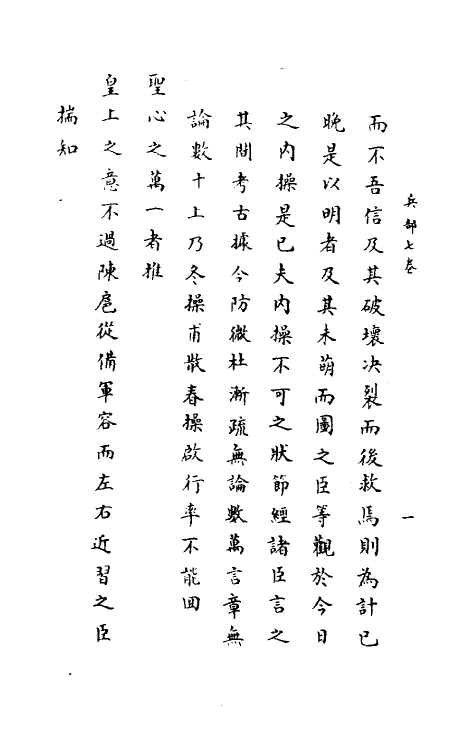 兵部七卷
一
而不吾信及其破壞决裂而後救焉則為計已
晚是以明者及其未萌而圖之臣等觀於今日
之内操是已夫内操不可之狀節經諸臣言之
其間考古據今防微杜漸疏無論數萬言章無
論數十上乃冬操甫散春操啟行率不能回
聖心之萬一者推
皇上之意不過陳扈從俻軍容而左右近習之臣
揣知